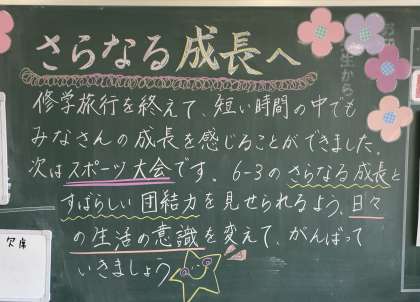 さらなる成長へ
修学旅行を終えて、短い時間の中でも
みなさんの成長を感じることができました。
次はスポーツ大会です。6-3のさらなる成長と
すばらしい団結力を見せられるよう、日々
の生活の意識を変えて、がんばって
いきましょう
生から
欠席